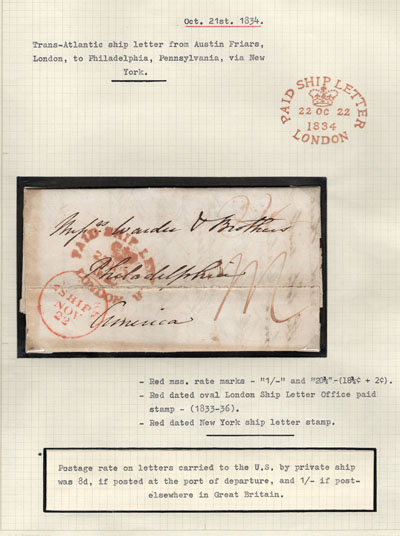 Oct. 21st. 1834.
Trans-Atlantic ship letter from Austin Friars,
London, to Philadelphia, Pennsylvania, via New
York.
PAID SHIP LETTER
22 OC 22
1834
LONDON
Messrs Warder & Brothers
PAID SHIP LE
Philadelphia
LONDON
SHIP
NOV
22
America
- Red mss. rate marks - "1/-" and "20½"-(18½¢ + 2¢).
- Red dated oval London Ship Letter Office paid
stamp - (1833-36).
- Red dated New York ship letter stamp.
Postage rate on letters carried to the U.S. by private ship
was 8d, if posted at the port of departure, and 1/- if post-
elsewhere in Great Britain.